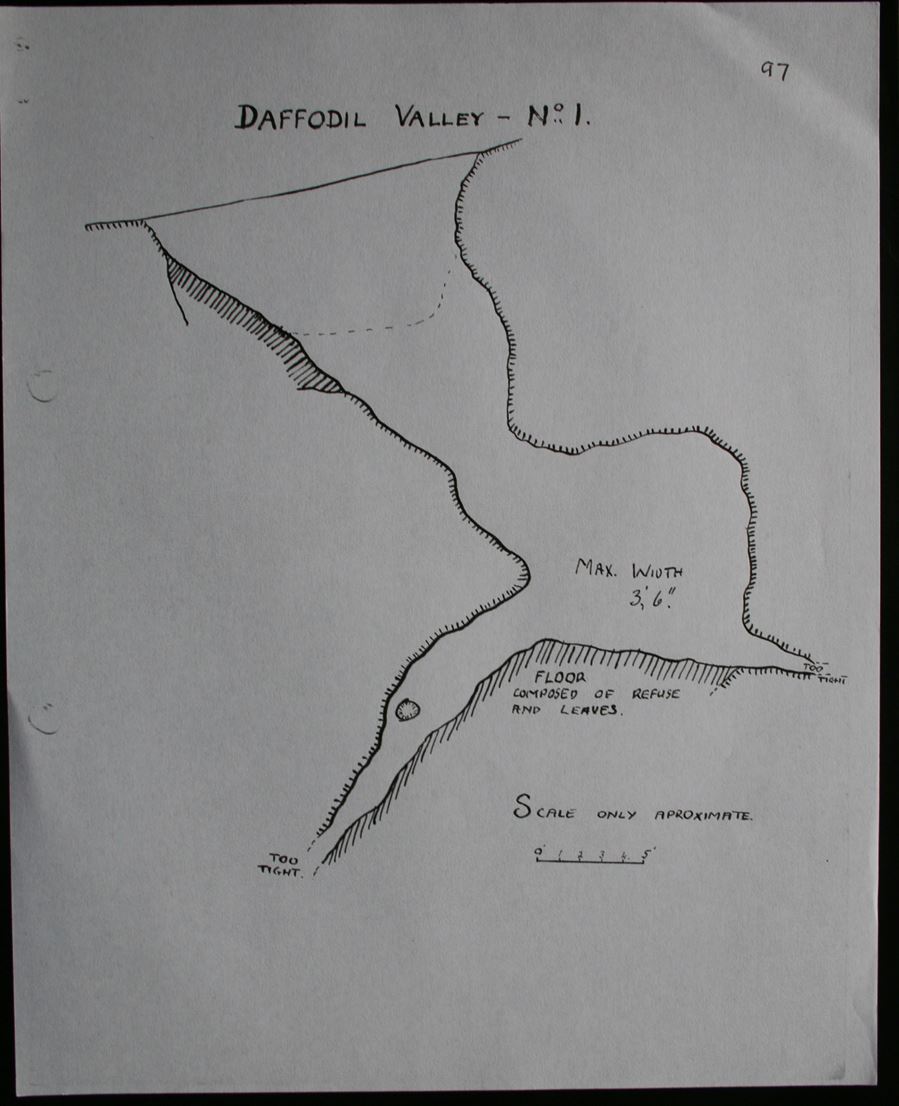 97
DAFFODIL VALLEY - Nº 1.
MAX. WIDTH
3' 6".
TOO
TIGHT
FLOOR
COMPOSED OF REFUSE
AND LEAVES.
SCALE ONLY APROXIMATE.
0' 1 2 3 4 5'
TOO
TIGHT.